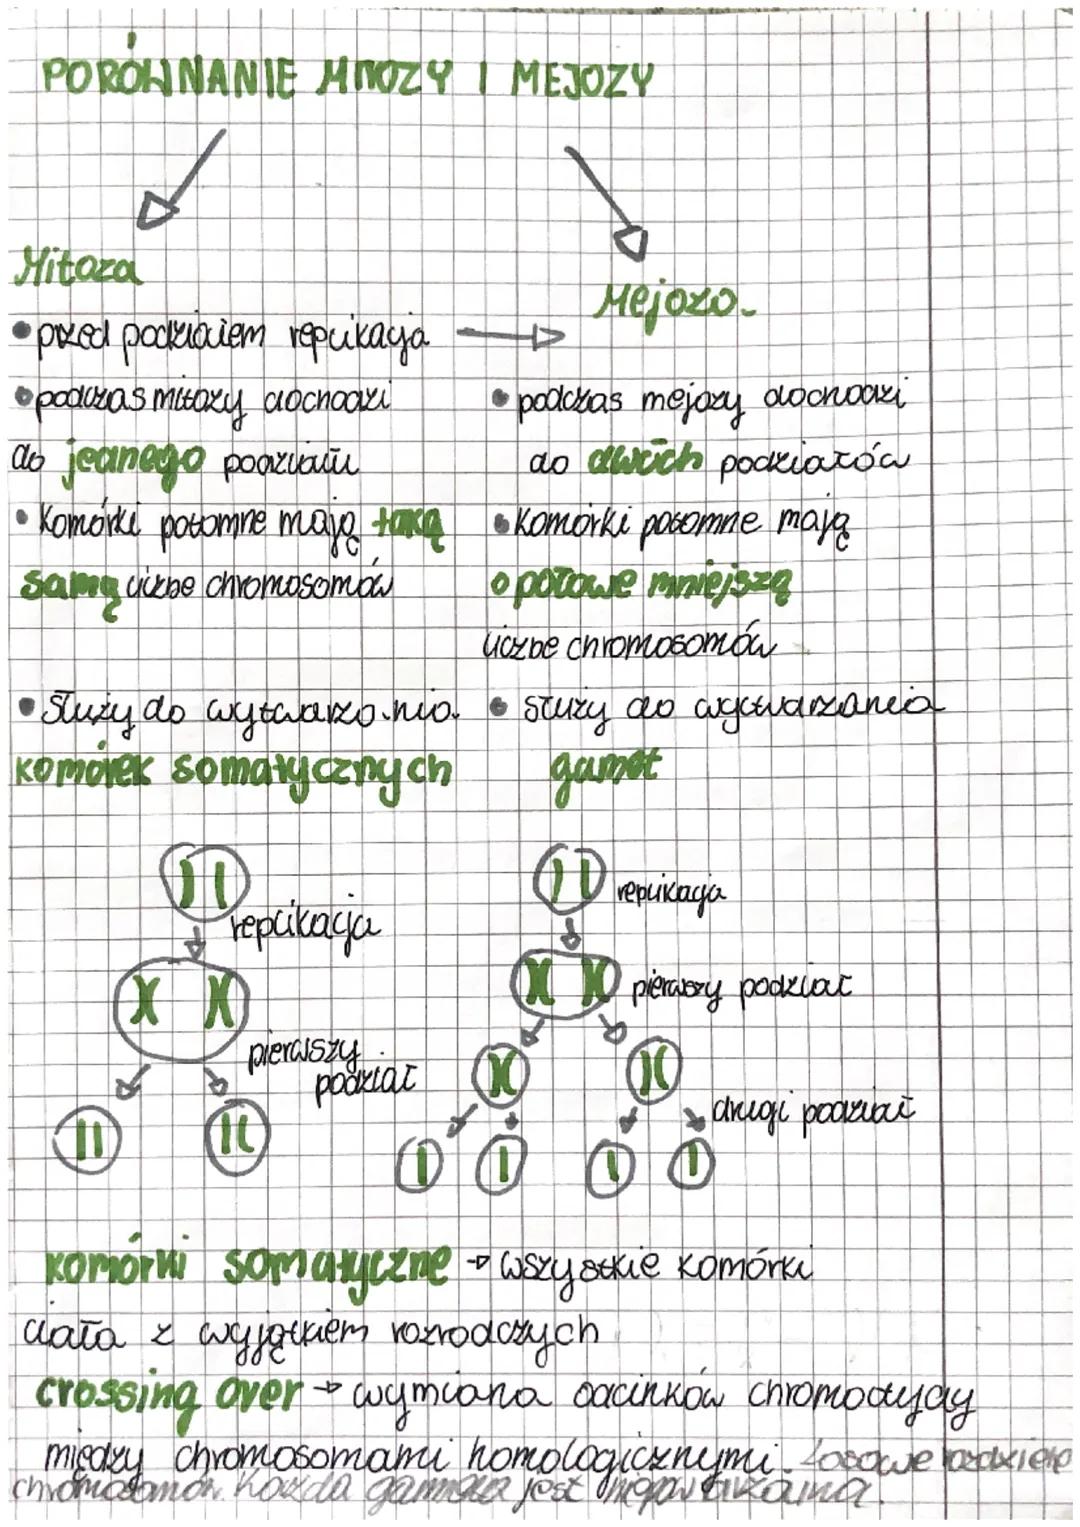 PORÓWNANIE MITOZY I MEJOZY
Mitoza
• przed podziałem replikacja
• podczas mitozy dochodzi
do jednego podziału
• Komórki potomne mają taką
samą liczbe chromosomów
• Służy do wytwarzania
komórek somatycznych
Mejoza
• podczas mejozy dochodzi
do dwóch podziałów
• Komórki potomne mają
o połowe mniejszą
liczbe chromosomów
• służy do wytwarzania
gamet
replikacja
pierwszy
podział
replikacja
pierwszy podział
drugi podział
komórki somatyczne → wszystkie komórki
ciała z wyjątkiem rozrodczych
crossing over → wymiana odcinków chromatydy
między chromosomami homologicznymi. Losowe
chromosomów. Każda gameta jest niepowtarzalna.